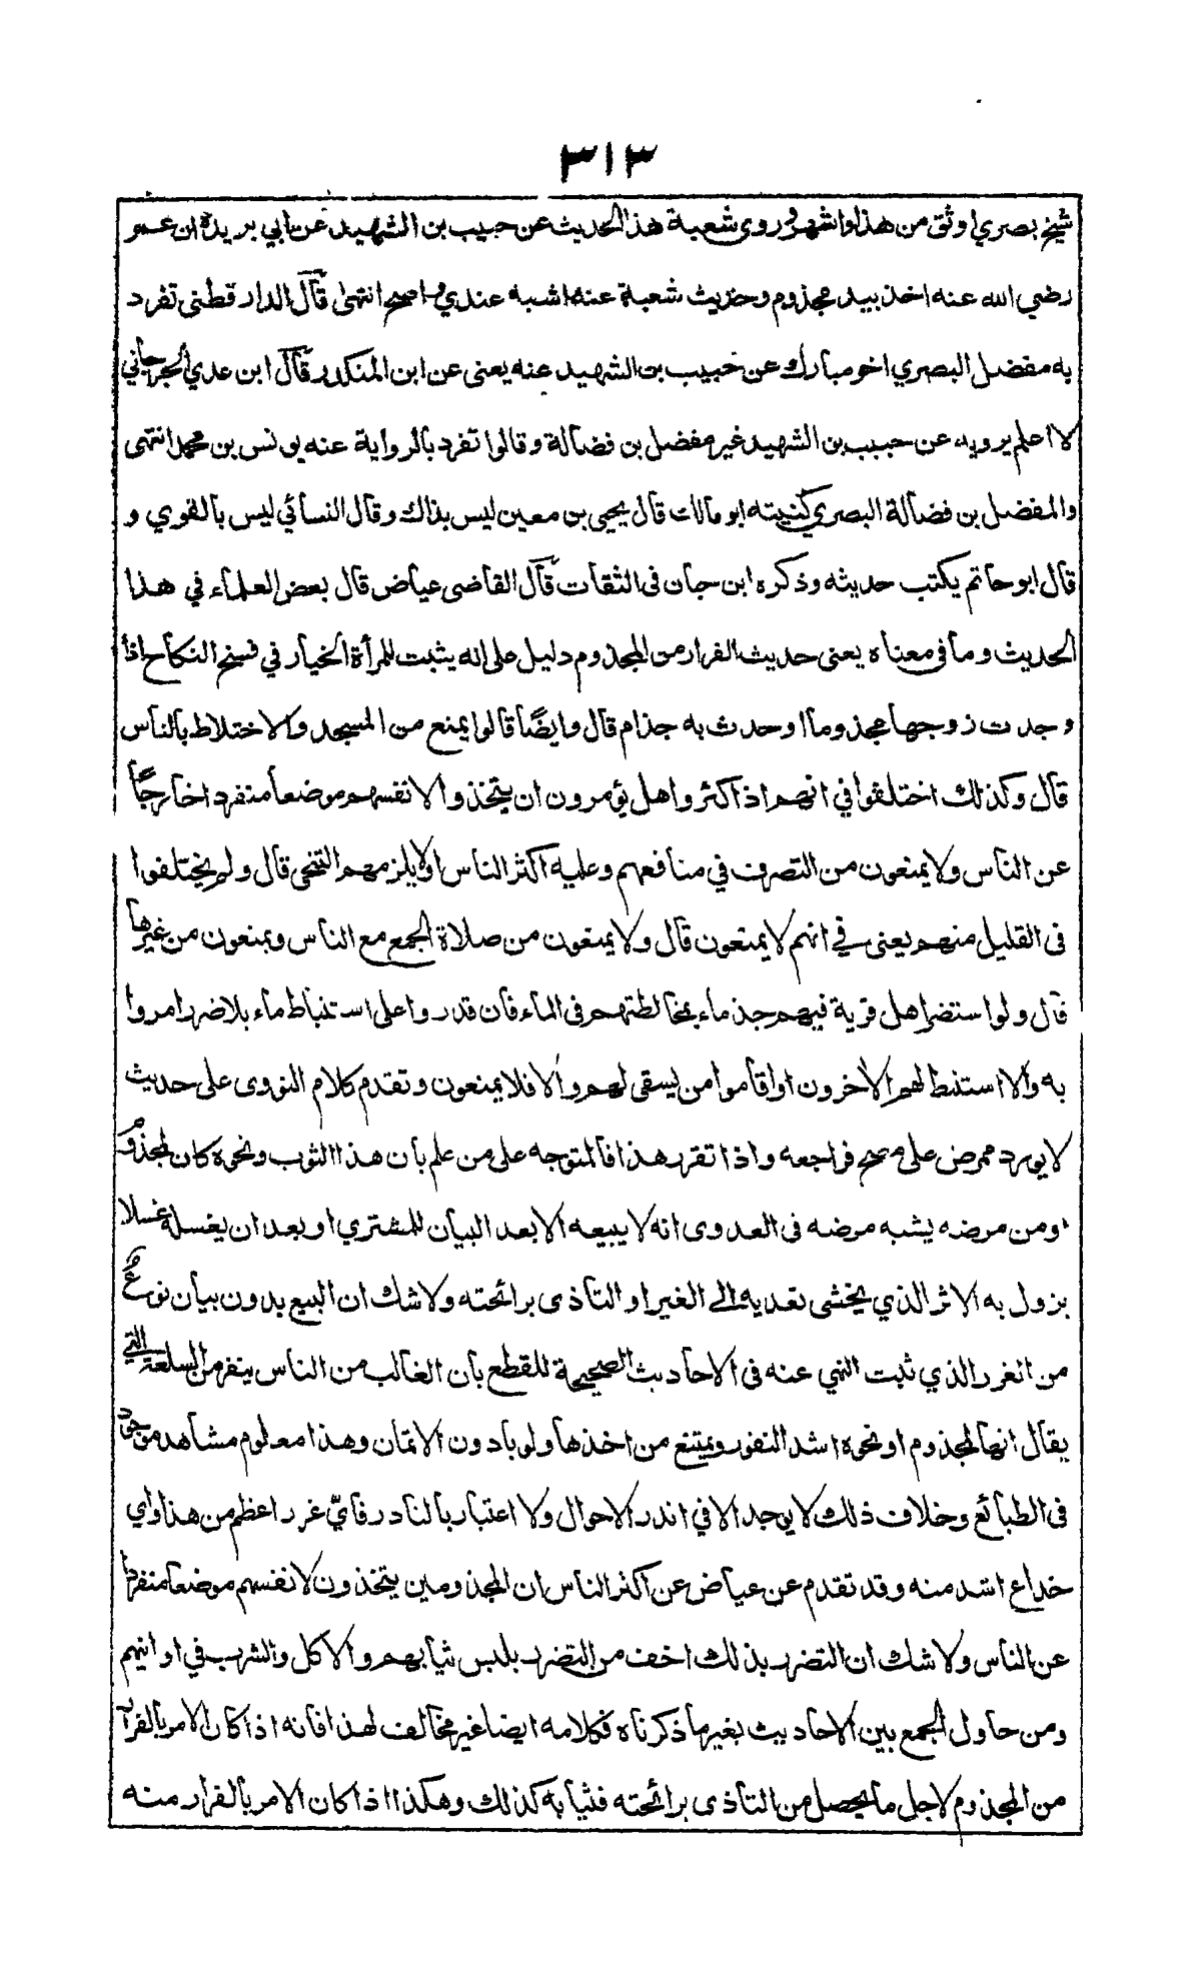 ٣١٣
شيخ بصري اوثق من هذا واشهر وروى شعبة هذا الحديث عن حبيب بن الشهيد عن ابي بريدة ان عمر
رضي الله عنه اخذ بيد مجذوم وحديث شعبة عنه اشبه عندي واصح انتهى قال الدار قطني تفرد
به مفضل البصري اخو مبارك عن حبيب بن الشهيد عنه يعنى عن ابن المنكدر قال ابن عدي الجرجاني
لا اعلم يرويه عن حبيب بن الشهيد غير مفضل بن فضالة وقالوا تفرد بالرواية عنه يونس بن محمد انتهى
والمفضل بن فضالة البصري كنيته ابو مالك قال يحيى بن معين ليس بذاك وقال النسائي ليس بالقوي و
قال ابو حاتم يكتب حديثه وذكره ابن حبان فى الثقات قال القاضى عياض قال بعض العلماء في هذا
الحديث وما فى معناه يعنى حديث الفرار من المجذوم دليل على انه يثبت للمرأة الخيار في فسخ النكاح اذا
وجدت زوجها مجذوما او حدث به جذام قال وايضًا قالوا يمنع من المسجد والاختلاط بالناس
قال وكذلك اختلفوا في انهم اذا كثروا هل يؤمرون ان يتخذوا لانفسهم موضعا منفردا خارجًا
عن الناس ولا يمنعون من التصرف في منافعهم وعليه اكثر الناس اولا يلزمهم التنحى قال ولم يختلفوا
فى القليل منهم يعنى في انهم لا يمنعون قال ولا يمنعون من صلاة الجمع مع الناس ويمنعون من غيرها
قال ولو استضر اهل قرية فيهم جذماء بمخالطتهم فى الماء فان قدروا على استنباط ماء بلا ضرر امروا
به والا استنبط لهم الآخرون او اقاموا من يسقى لهم والا فلا يمنعون وتقدم كلام النووى على حديث
لا يورد ممرض على مصح فراجعه واذا تقرر هذا فالمتوجه على من علم بان هذا الثوب ونحوه كان لمجذوم
او من مرضه يشبه مرضه فى العدوى انه لا يبيعه الا بعد البيان للمشتري او بعد ان يغسله غسلا
يزول به الاثر الذي يخشى تعديه الى الغير او التأذى برائحته ولا شك ان البيع بدون بيان نوع
من الغرر الذي ثبت النهي عنه فى الاحاديث الصحيحة للقطع بان الغالب من الناس ينفر من السلعة التي
يقال انها لمجذوم او نحوه اشد النفور ويمتنع من اخذها ولو بادون الاثمان وهذا معلوم مشاهد موجود
فى الطبائع وخلاف ذلك لا يوجد الا في اندر الاحوال ولا اعتبار بالنادر فايّ غرر اعظم من هذا واي
خداع اشد منه وقد تقدم عن عياض عن اكثر الناس ان المجذومين يتخذون لانفسهم موضعا منفردا
عن الناس ولا شك ان التضرر بذلك اخف من التضرر بلبس ثيابهم والاكل والشرب في اوانيهم
ومن حاول الجمع بين الاحاديث بغير ما ذكرناه فكلامه ايضا غير مخالف لهذا فانه اذا كان الامر بالفرار
من المجذوم لاجل ما يحصل من التأذى برائحته فثيابه كذلك وهكذا اذا كان الامر بالفرار منه